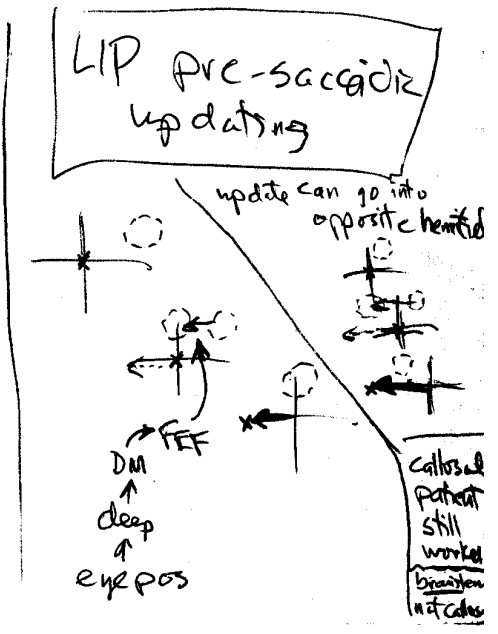 LIP pre-saccadic
updating
update can go into
opposite hemifield
FEF
DM
deep
eye pos
callosal
patient
still
worked
brainstem
not callosal